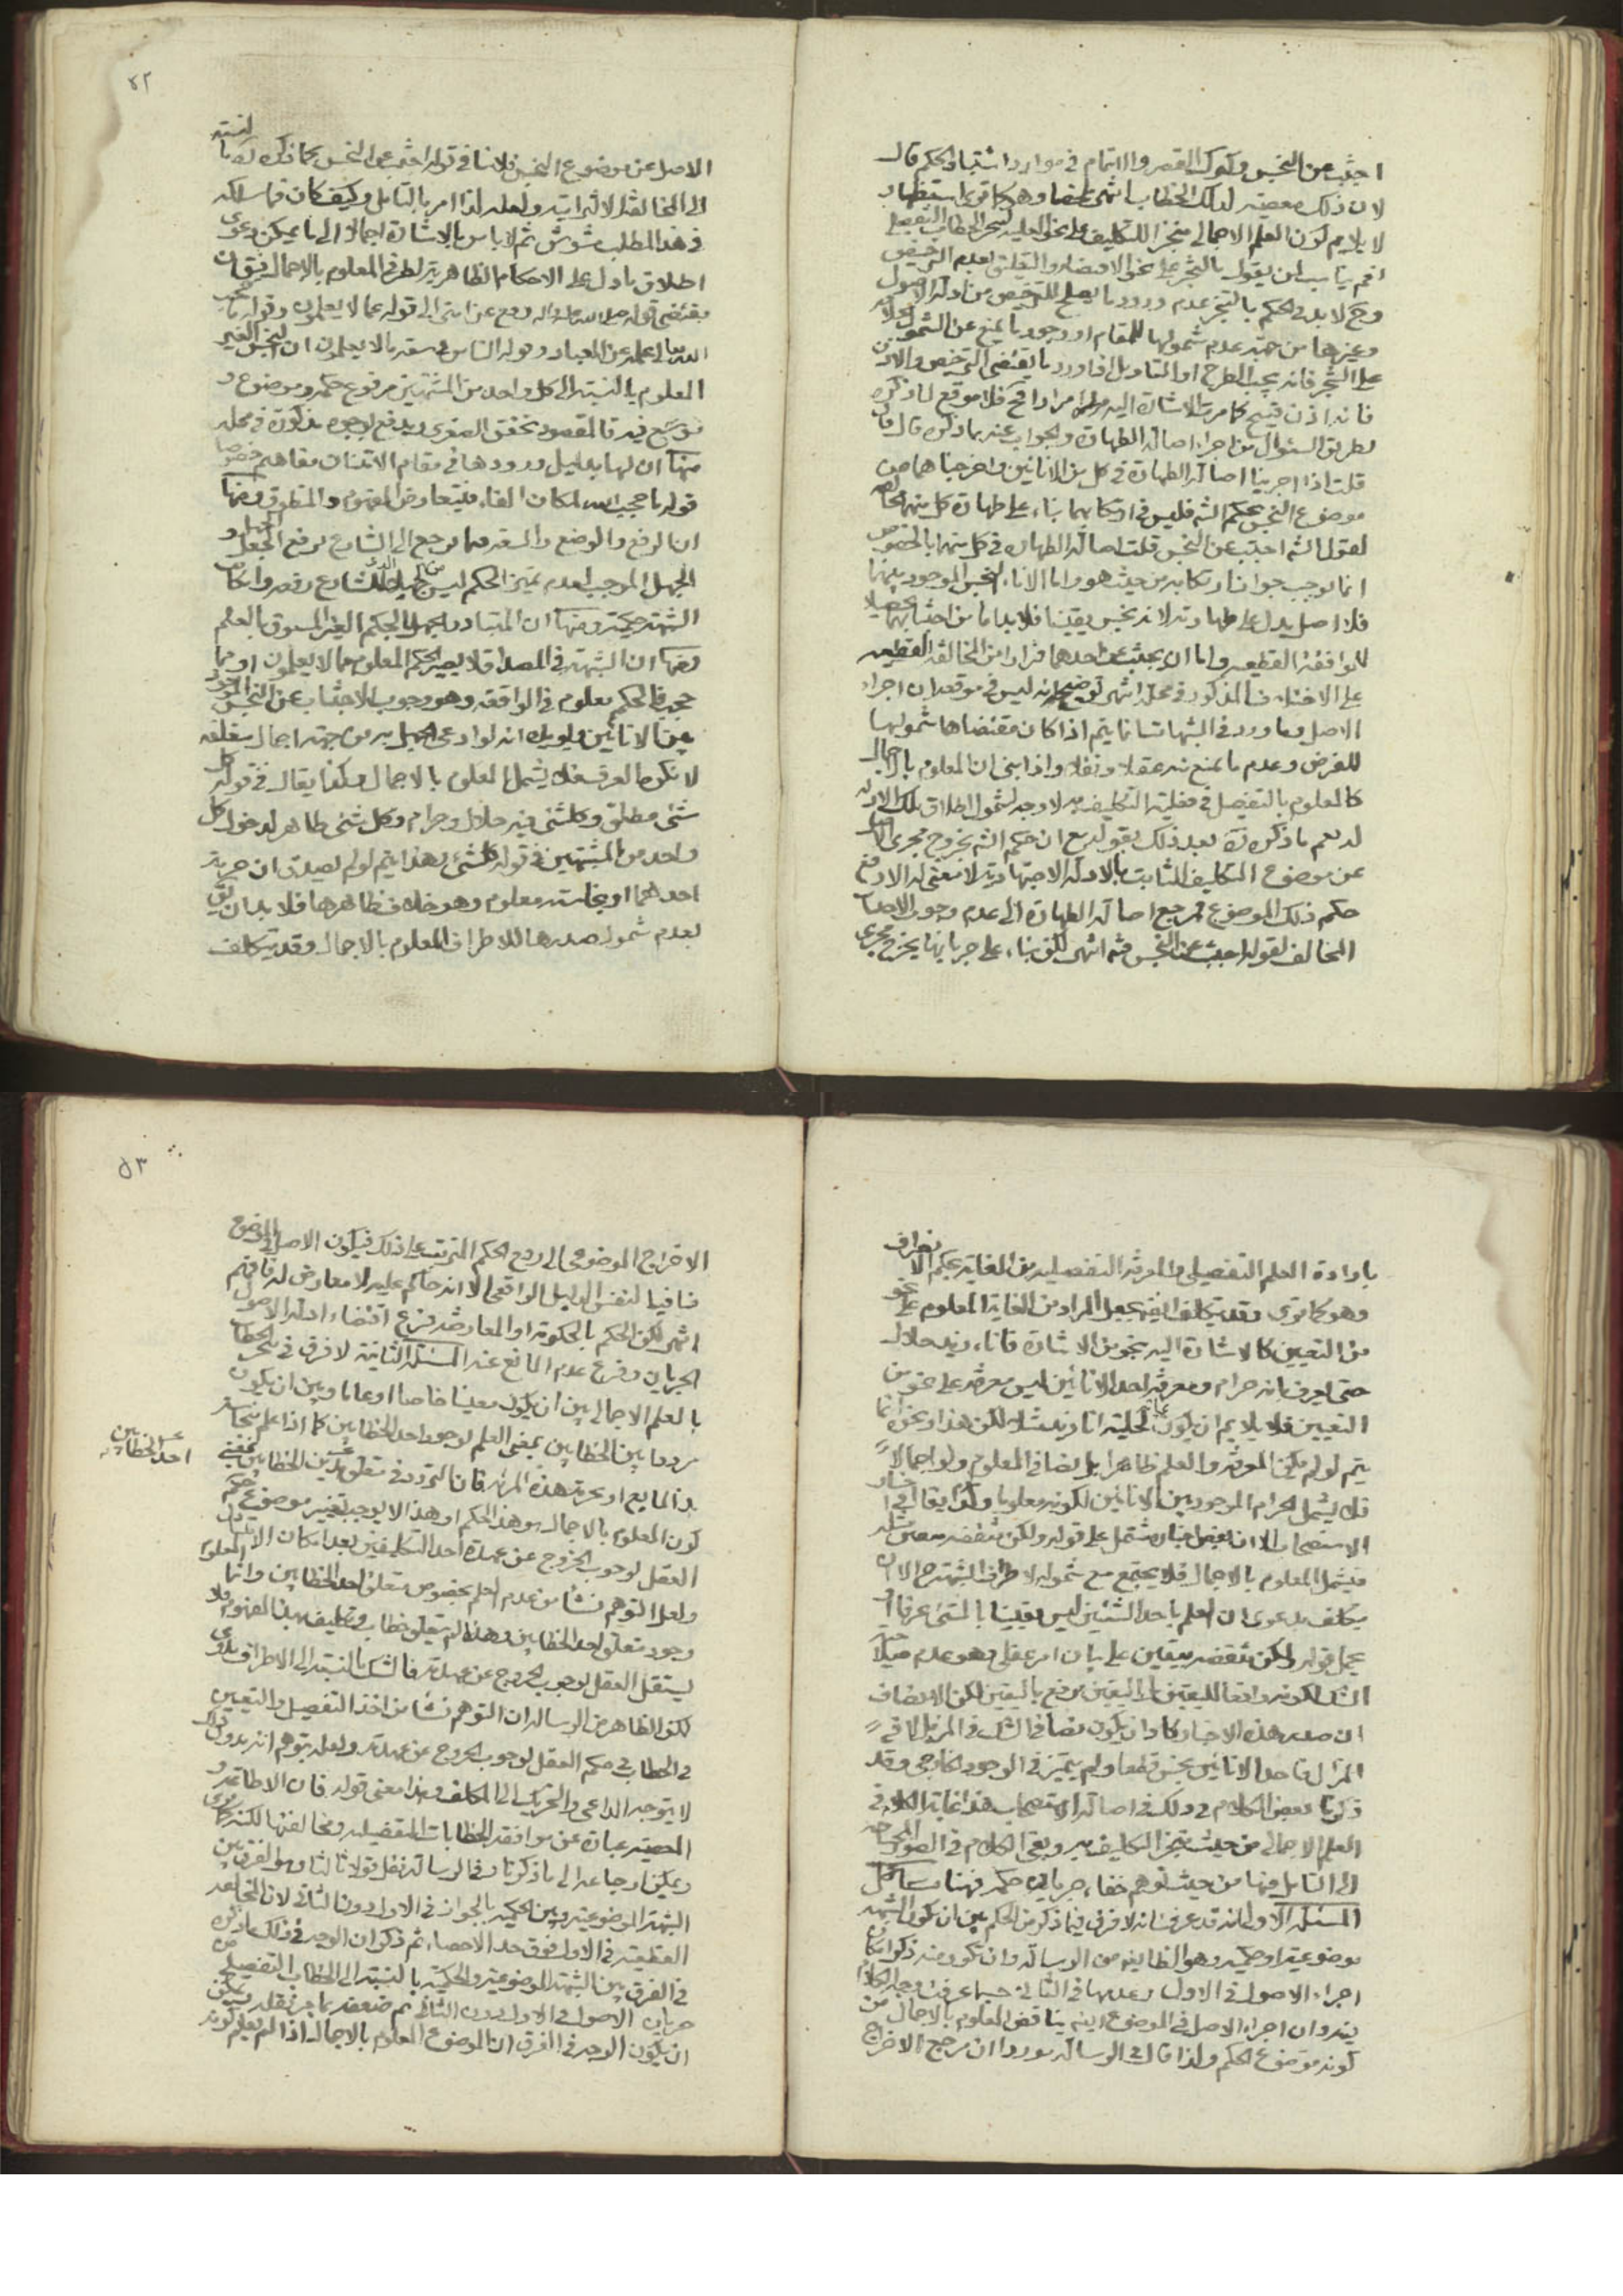 اجتنب عن النجس وكترك القصر والاتمام في موارد اشتباه الحكم قال
لان ذلك معصية لذلك الخطاب انتهى ملخصا وهو كما ترى استظهار
لا يلايم كون العلم الاجمالي منجزا للتكليف على نحو العلية لتنجز الخطاب التفصيلي
نعم يناسب لمن يقول بالتنجز على نحو الاقتضاء والتعليق لعدم الترخيص
وح لا بد في الحكم بالتنجز عدم ورود ما يصلح للترخيص من ادلة الاصول
وغيرها من جهة عدم شمولها للمقام او وجود ما يمنع عن الشمول
على التنجز فانه يجب الطرح او التاويل اذا ورد ما يقتضي الترخيص والاذن
فانه اذن قبيح كما مرت الاشارة اليه مرارا وح فلا موقع لما ذكره
بطريق السئوال من اجراء اصالة الطهارة والجواب عنه بما ذكره قال فان
قلت اذا اجرينا اصالة الطهارة في كل من الانائين واخرجناهما من
موضوع النجس بحكم الشه فليس في ارتكابهما بناء على طهارة كل منهما مخالفة
لقول الشه اجتنب عن النجس قلت اصالة الطهارة في كل منهما بالخصوص
انما يوجب جواز ارتكابه من حيث هو واما الاناء النجس الموجود بينهما
فلا اصل يدل على طهارته لانه نجس يقينا فلا بد اما من اجتنابهما تحصيلا
للموافقة القطعية واما ان يجتنب عن احدهما فرارا من المخالفة القطعية
على الاختلاف المذكور في محله انتهى توضيح انه ليس في موقعه ان اجراء
الاصل وما ورد في الشبهات انما يتم اذا كان مقتضاها شمولها
للفرض وعدم ما يمنع عنه عقلا ونقلا واذا بنى ان المعلوم بالاجمال
كالمعلوم بالتفصيل في فعلية التكليف به لا وجه لشمول اطلاق تلك الادلة
له نعم ما ذكره ره بعد ذلك بقوله مع ان حكم الشه بخروج مجرى الاصل
عن موضوع التكليف الثابت بالادلة الاجتهادية لا معنى له الا رفع
حكم ذلك الموضوع فمرجع اصالة الطهارة الى عدم وجوب الاجتناب
المخالف لقوله اجتنب عن النجس فته انتهى لكن بناء على جريانها يخرج مجرى
٥٢
الاصل عن موضوع النجس فلا ينافي قوله اجتنب عن النجس كما ذكره ره بالنسبة
الى المخالفة الالتزامية ولعله لذا امر بالتامل وكيف كان فما سلكه
في هذا المطلب مشوش ثم لا باس بالاشارة اجمالا الى ما يمكن دعوى
اطلاق ما دل على الاحكام الظاهرية لطرفي المعلوم بالاجمال فيق ان
مقتضى قوله صلى الله عليه واله رفع عن امتي الى قوله عما لا يعلمون وقوله ما حجب
الله تعالى علمه عن العباد وقوله الناس في سعة ما لا يعلمون ان النجس الغير
المعلوم بالنسبة الى كل واحد من المشتبهين مرفوع حكمه وموضوع و
موسع فيه فالمقصود تحقق الصغرى ويدفع بوجوه مذكورة في محله
منها ان لها بدليل ورودها في مقام الامتنان مفاهيم خصوصا
قوله ما حجب الله لمكان الفاء فيتعارض المفهوم والمنطوق ومنها
ان الرفع والوضع والسعة فيما يرجع الى الشارع برفع الجهل و
الجهل الموجب لعدم تميز الحكم ليس من الجهل الذي للشارع رفعه وارتكاب
الشبهة حكمية ومنها ان المتبادر الجهل بالحكم الغير المسبوق بالعلم
ومنها ان الشبهة في المصداق لا يصير الحكم المعلوم مما لا يعلمون او مما
حجب فالحكم معلوم في الواقعة وهو وجوب الاجتناب عن النجس الموجود
بين الانائين ويؤيده انه لو ادعى الجهل به من جهة اجمال متعلقه
لانكره العرف فلا يشمل المعلوم بالاجمال وهكذا يقال في قوله كل
شئ مطلق وكل شئ فيه حلال وحرام وكل شئ طاهر لدخول كل
واحد من المشتبهين في قوله كل شئ وهذا يتم لو لم يصدق ان حرمة
احدهما او نجاسته معلوم وهو خلاف ظاهرها فلا بد ان يق
بعدم شمول صدرها للاطراف المعلوم بالاجمال وقد يتكلف
بارادة العلم التفصيلي والمعرفة التفصيلية من الغاية بحكم الانصراف
وهو كما ترى وقد يتكلف ايض بجعل المراد من الغاية المعلوم على نحو
من التعيين كالاشارة اليه بنحو من الاشارة فاناء زيد حلال
حتى يعرف بانه حرام ومعرفة احد الانائين ليس معرفة على نحو من
التعيين فلا يلايم ان يكون غاية لحلية اناء زيد مثلا لكن هذا ونحوه انما
يتم لو لم يكن المعرفة والعلم ظاهرا بل نصا في المعلوم ولو اجمالا
فلا يشمل الحرام الموجود بين الانائين لكونه معلوما وكذا يقال في اخبار
الاستصحاب الا ان بعض اخباره مشتمل على قوله ولكن تنقضه بيقين مثله
فيشمل المعلوم بالاجمال فلا يجتمع مع شموله لاطراف الشبهة الا ان
يتكلف بدعوى ان العلم باحد الشيئين ليس يقينا بالشئ عرفا او
بحمل قوله ولكن تنقضه بيقين على بيان امر عقلي وهو عدم حيلولة
الشك لكونه رافعا لليقين بل اليقين مرفوع باليقين لكن الانصاف
ان صدر هذه الاخبار كاد ان يكون نصا في الشك في المزيل لا في
المزال فاحد الانائين نجس قطعا ولم يتميز في الوجود الخارجي وقد
ذكرنا بعض الكلام في ذلك في اصالة الاستصحاب هذا غاية الكلام في
العلم الاجمالي من حيث تنجز التكليف به وبقي الكلام في الصور المحتاجة
الى التامل فيها من حيث توهم خفاء جريان حكمه فهنا مسائل
المسئلة الاولى انه قد عرفت انه لا فرق فيما ذكر من الحكم بين ان يكون الشبهة
موضوعية او حكمية وهو الظاهر من الرسالة وان تكرر منه ذكر امكان
اجراء الاصول في الاولى دونها في الثانية حسبما عرفت وجه الكلام
فيه وان اجراء الاصل في الموضوع ايضا يناقض المعلوم بالاجمال من
كونه موضوع الحكم ولذا قال في الرسالة موردا ان مرجع الاخراج
٥٣
الاخراج الموضوعي الى رفع الحكم المترتب على ذلك فيكون الاصل في الموضوع
منافيا لنفس الدليل الواقعي الا انه حاكم عليه لا معارض له فافهم
انتهى لكن الحكم بالحكومة او المعارضة فرع اقتضاء ادلة الاصول
الجريان وفرع عدم المانع عنه المسئلة الثانية لا فرق في تنجز الخطاب
بالعلم الاجمالي بين ان يكون معينا خاصا او عاما وبين ان يكون
مرددا بين الخطابين بمعنى العلم بوجود احد الخطابين كما اذا علم بنجاسة
هذا المايع او بحرمة هذه المرئة فان التردد في متعلق هذين الخطابين بمعنى
عن احد الخطابين
كون المعلوم بالاجمال هو هذا الحكم او هذا لا يوجب تغيير موضوع حكم
العقل لوجوب الخروج عن عهدة احد التكليفين بعد امكان الامتثال
ولعل التوهم نشأ من عدم العلم بخصوص متعلق احد الخطابين وانما المعلوم
وجود متعلق احد الخطابين وهذا لم يتعلق خطاب وتكليف بهذا المفهوم فلا
يستقل العقل بوجوب الخروج عن عهدته فالشك بالنسبة الى الاطراف بدوي
لكن الظاهر من الرسالة ان التوهم نشأ من اخذ التفصيل والتعيين
في الخطاب في حكم العقل بوجوب الخروج عن عهدته ولعله بتوهم انه بدون ذلك
لا يتوجه الداعي والتحريك الى المكلف وهذا معنى قوله فان الاطاعة و
المعصية عبارة عن موافقة الخطابات التفصيلية ومخالفتها لكنه كما ترى
ويمكن ارجاعه الى ما ذكرنا وفي الرسالة نقل قولا ثالثا وهو الفرق بين
الشبهة الموضوعية وبين الحكمية بالجواز في الاول دون الثاني لان المخالفة
القطعية في الاول فوق حد الاحصاء ثم ذكر ان الوجه في ذلك ما ذكره
في الفرق بين الشبهة الموضوعية والحكمية بالنسبة الى الخطاب التفصيلي من
جريان الاصول في الاول دون الثاني ثم ضعفه بما مر نقله ويمكن
ان يكون الوجه في الفرق ان الموضوع المعلوم بالاجمال اذا لم يعلم كونه